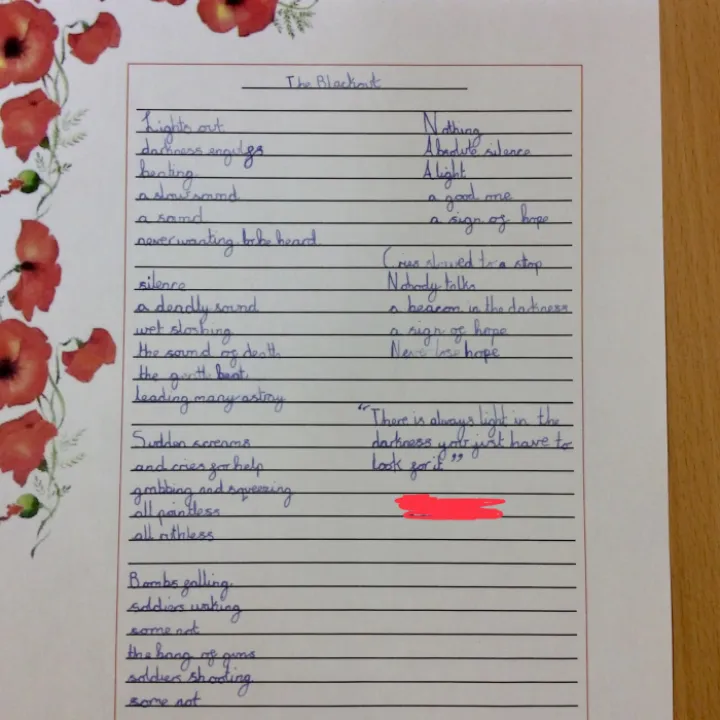 The Blackout
Lights out
darkness engulfs
beating
a slow sound
a sound
never wanting to be heard
silence
a deadly sound
wet sloshing
the sound of death
the gentle beat
leading many astray
Sudden screams
and cries for help
grabbing and squeezing
all pointless
all ruthless
Bombs falling
soldiers waking
some not
the bang of guns
soldiers shooting
some not
Nothing
Absolute silence
A light
a good one
a sign of hope
Cries slowed to a stop
Nobody talks
a beacon in the darkness
a sign of hope
Never lose hope
"There is always light in the
darkness you just have to
look for it"